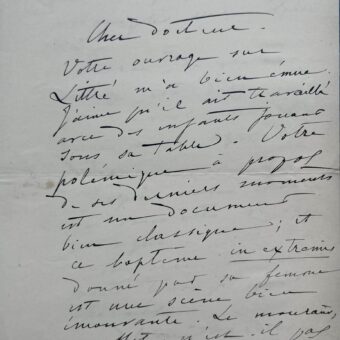 Cher docteur.
Votre ouvrage sur
Littré m'a bien émue.
J'aime qu'il ait travaillé
avec des enfants jouant
sous sa table. Votre
polémique à propos
de ses derniers moments
est un document
bien classique; et
ce baptême in extremis
donné par sa femme
est une scène bien
émouvante. Le mourant,
n'est-il pas